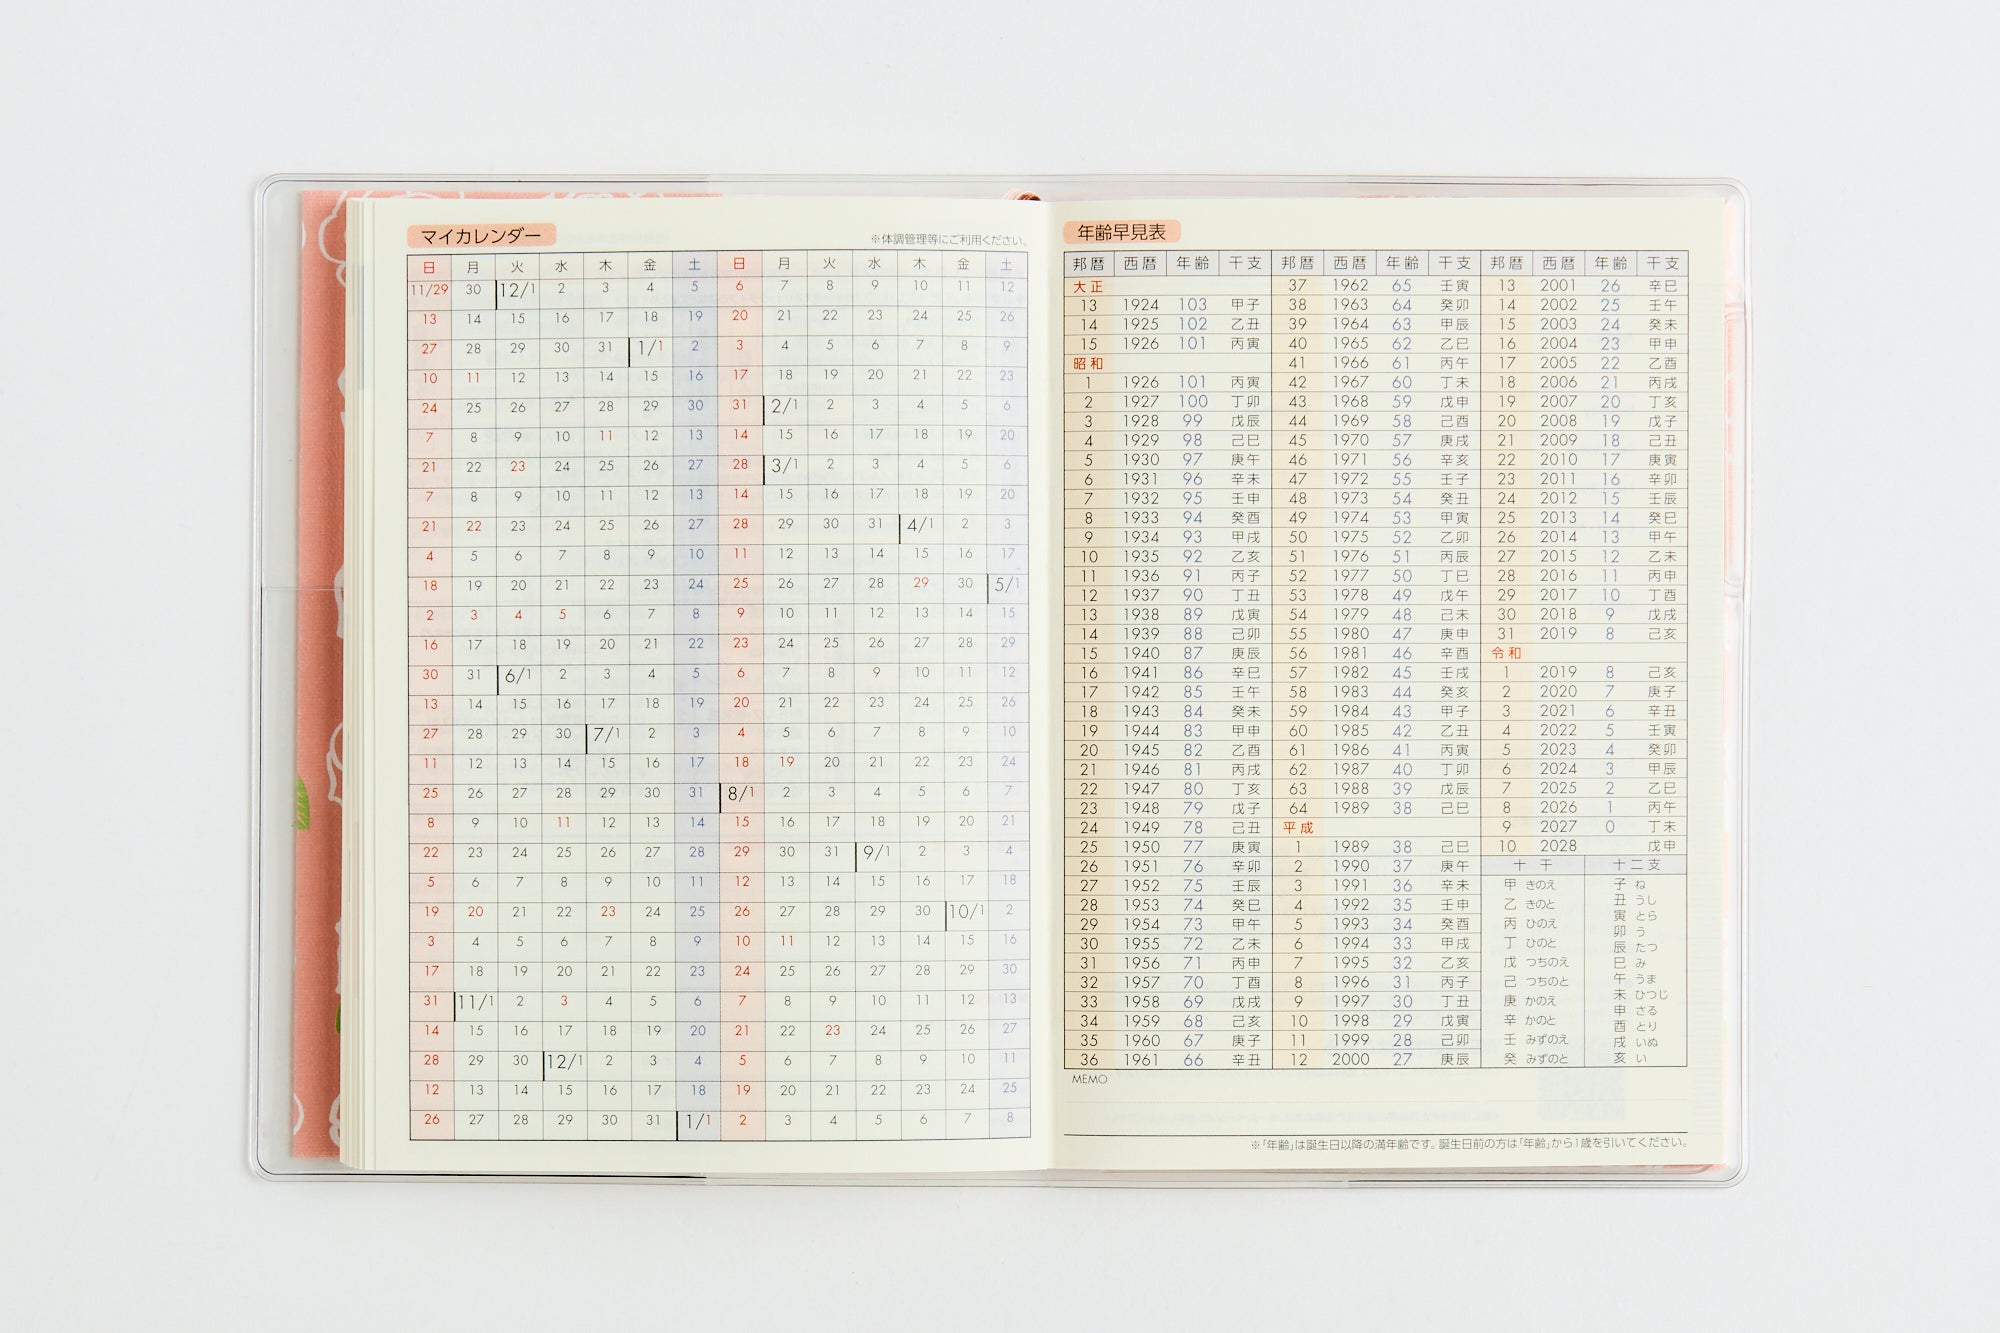 マイカレンダー
※体調管理等にご利用ください。
日 月 火 水 木 金 土 日 月 火 水 木 金 土
11/29 30 12/1 2 3 4 5 6 7 8 9 10 11 12
13 14 15 16 17 18 19 20 21 22 23 24 25 26
27 28 29 30 31 1/1 2 3 4 5 6 7 8 9
10 11 12 13 14 15 16 17 18 19 20 21 22 23
24 25 26 27 28 29 30 31 2/1 2 3 4 5 6
7 8 9 10 11 12 13 14 15 16 17 18 19 20
21 22 23 24 25 26 27 28 3/1 2 3 4 5 6
7 8 9 10 11 12 13 14 15 16 17 18 19 20
21 22 23 24 25 26 27 28 29 30 31 4/1 2 3
4 5 6 7 8 9 10 11 12 13 14 15 16 17
18 19 20 21 22 23 24 25 26 27 28 29 30 5/1
2 3 4 5 6 7 8 9 10 11 12 13 14 15
16 17 18 19 20 21 22 23 24 25 26 27 28 29
30 31 6/1 2 3 4 5 6 7 8 9 10 11 12
13 14 15 16 17 18 19 20 21 22 23 24 25 26
27 28 29 30 7/1 2 3 4 5 6 7 8 9 10
11 12 13 14 15 16 17 18 19 20 21 22 23 24
25 26 27 28 29 30 31 8/1 2 3 4 5 6 7
8 9 10 11 12 13 14 15 16 17 18 19 20 21
22 23 24 25 26 27 28 29 30 31 9/1 2 3 4
5 6 7 8 9 10 11 12 13 14 15 16 17 18
19 20 21 22 23 24 25 26 27 28 29 30 10/1 2
3 4 5 6 7 8 9 10 11 12 13 14 15 16
17 18 19 20 21 22 23 24 25 26 27 28 29 30
31 11/1 2 3 4 5 6 7 8 9 10 11 12 13
14 15 16 17 18 19 20 21 22 23 24 25 26 27
28 29 30 12/1 2 3 4 5 6 7 8 9 10 11
12 13 14 15 16 17 18 19 20 21 22 23 24 25
26 27 28 29 30 31 1/1 2 3 4 5 6 7 8
年齢早見表
邦暦 西暦 年齢 干支
大正
13 1924 103 甲子
14 1925 102 乙丑
15 1926 101 丙寅
昭和
1 1926 101 丙寅
2 1927 100 丁卯
3 1928 99 戊辰
4 1929 98 己巳
5 1930 97 庚午
6 1931 96 辛未
7 1932 95 壬申
8 1933 94 癸酉
9 1934 93 甲戌
10 1935 92 乙亥
11 1936 91 丙子
12 1937 90 丁丑
13 1938 89 戊寅
14 1939 88 己卯
15 1940 87 庚辰
16 1941 86 辛巳
17 1942 85 壬午
18 1943 84 癸未
19 1944 83 甲申
20 1945 82 乙酉
21 1946 81 丙戌
22 1947 80 丁亥
23 1948 79 戊子
24 1949 78 己丑
25 1950 77 庚寅
26 1951 76 辛卯
27 1952 75 壬辰
28 1953 74 癸巳
29 1954 73 甲午
30 1955 72 乙未
31 1956 71 丙申
32 1957 70 丁酉
33 1958 69 戊戌
34 1959 68 己亥
35 1960 67 庚子
36 1961 66 辛丑
邦暦 西暦 年齢 干支
37 1962 65 壬寅
38 1963 64 癸卯
39 1964 63 甲辰
40 1965 62 乙巳
41 1966 61 丙午
42 1967 60 丁未
43 1968 59 戊申
44 1969 58 己酉
45 1970 57 庚戌
46 1971 56 辛亥
47 1972 55 壬子
48 1973 54 癸丑
49 1974 53 甲寅
50 1975 52 乙卯
51 1976 51 丙辰
52 1977 50 丁巳
53 1978 49 戊午
54 1979 48 己未
55 1980 47 庚申
56 1981 46 辛酉
57 1982 45 壬戌
58 1983 44 癸亥
59 1984 43 甲子
60 1985 42 乙丑
61 1986 41 丙寅
62 1987 40 丁卯
63 1988 39 戊辰
64 1989 38 己巳
平成
1 1989 38 己巳
2 1990 37 庚午
3 1991 36 辛未
4 1992 35 壬申
5 1993 34 癸酉
6 1994 33 甲戌
7 1995 32 乙亥
8 1996 31 丙子
9 1997 30 丁丑
10 1998 29 戊寅
11 1999 28 己卯
12 2000 27 庚辰
邦暦 西暦 年齢 干支
13 2001 26 辛巳
14 2002 25 壬午
15 2003 24 癸未
16 2004 23 甲申
17 2005 22 乙酉
18 2006 21 丙戌
19 2007 20 丁亥
20 2008 19 戊子
21 2009 18 己丑
22 2010 17 庚寅
23 2011 16 辛卯
24 2012 15 壬辰
25 2013 14 癸巳
26 2014 13 甲午
27 2015 12 乙未
28 2016 11 丙申
29 2017 10 丁酉
30 2018 9 戊戌
31 2019 8 己亥
令和
1 2019 8 己亥
2 2020 7 庚子
3 2021 6 辛丑
4 2022 5 壬寅
5 2023 4 癸卯
6 2024 3 甲辰
7 2025 2 乙巳
8 2026 1 丙午
9 2027 0 丁未
10 2028 戊申
十干
甲 きのえ
乙 きのと
丙 ひのえ
丁 ひのと
戊 つちのえ
己 つちのと
庚 かのえ
辛 かのと
壬 みずのえ
癸 みずのと
十二支
子 ね
丑 うし
寅 とら
卯 う
辰 たつ
巳 み
午 うま
未 ひつじ
申 さる
酉 とり
戌 いぬ
亥 い
MEMO
※「年齢」は誕生日以降の満年齢です。誕生日前の方は「年齢」から1歳を引いてください。